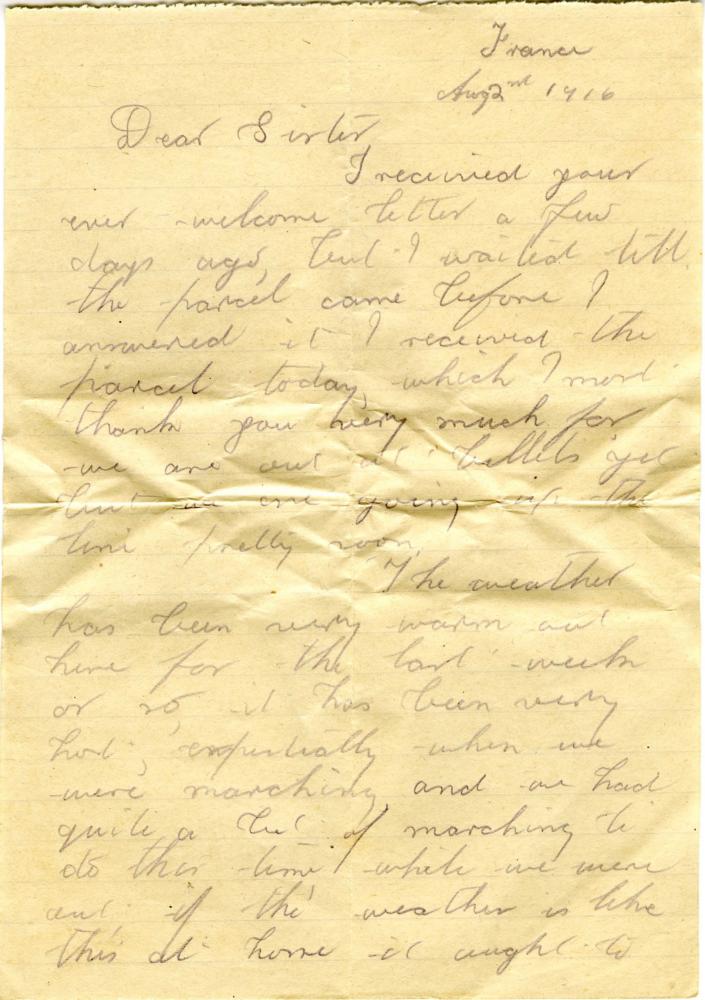 France
Aug 2nd 1916
Dear Sister
I received your
ever welcome letter a few
days ago, but I waited till
the parcel came before I
answered it I received the
parcel today, which I most
thank you very much for
we are out at billets yet
but we are going up the
line pretty soon,
The weather
has been very warm out
here for the last week
or so, it has been very
hot, expectially when we
were marching and we had
quite a bit of marching to
do this time while we were
out if the weather is like
this at home it aught to